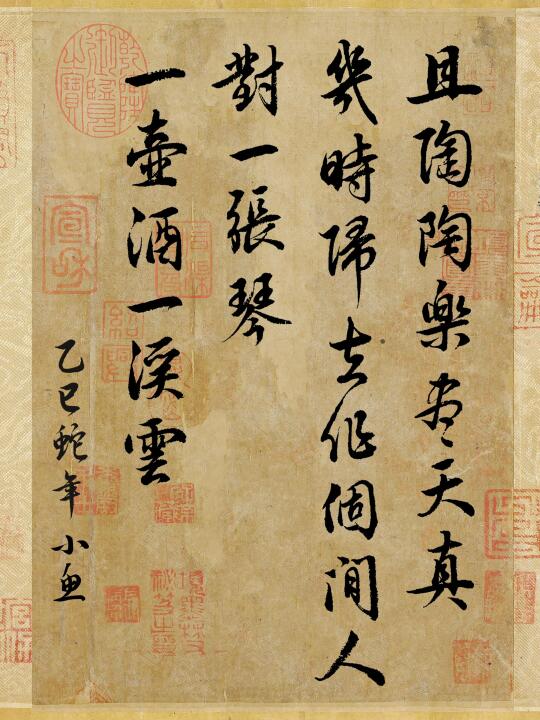 且陶陶樂盡天真
幾時歸去作個閒人
對一張琴
一壺酒一溪雲
乙巳蛇年小魚
宣和